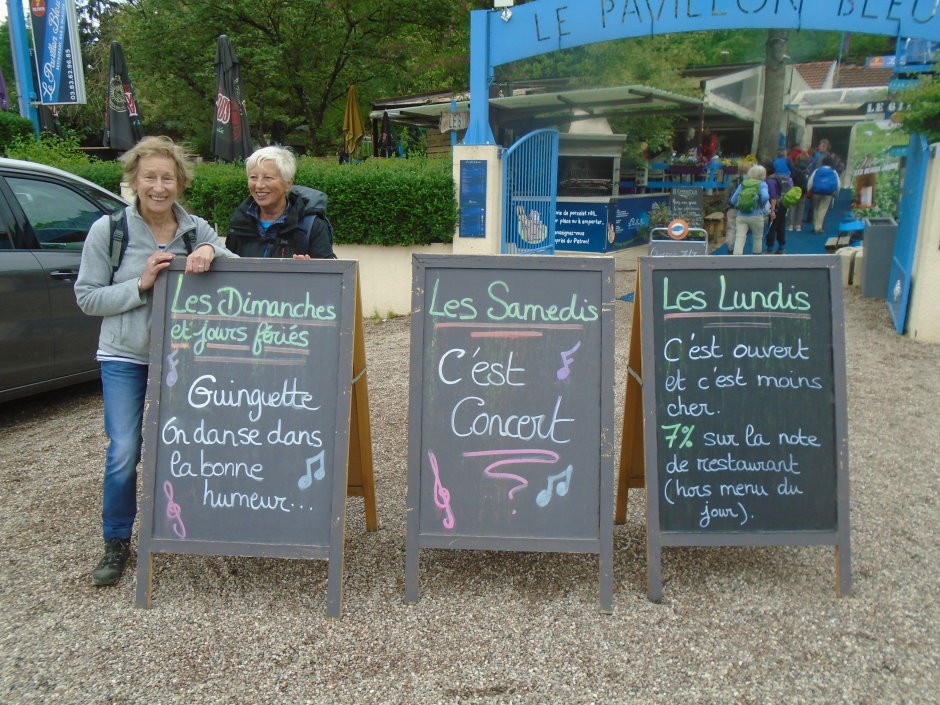 LE PAVILLON BLEU
Le Pavillon Bleu
03 83 62
Les Dimanches
et jours fériés
Guinguette
On danse dans
la bonne
humeur...
Les Samedis
C'ést
Concert
Les Lundis
C'est ouvert
et c'est moins
cher.
7% sur la note
de restaurant
(hors menu du
jour).